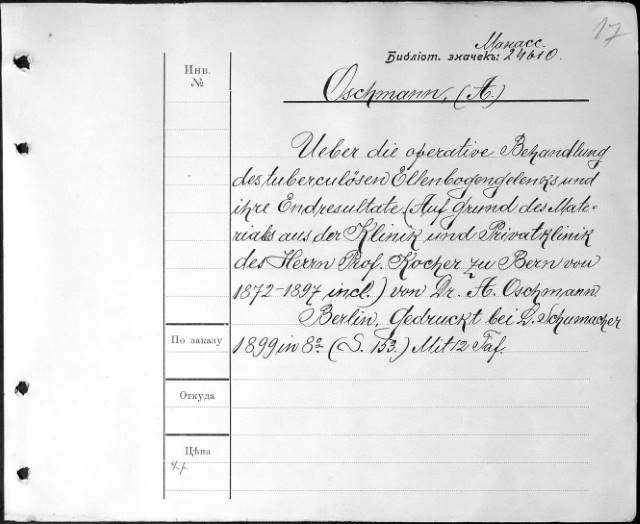 17
Манасс.
Библіот. значекъ: 24610.
Инв.
№
Oschmann, (A.)
Ueber die operative Behandlung
des tuberculösen Ellenbogengelenks und
ihre Endresultate. (Auf Grund des Mate-
rials aus der Klinik und Privatklinik
des Herrn Prof. Kocher zu Bern von
1872-1897 incl.) von Dr. A. Oschmann.
Berlin, gedruckt bei L. Schumacher
По заказу
1899 in 8º (S. 153.) Mit 12 Taf.
Откуда
Цѣна